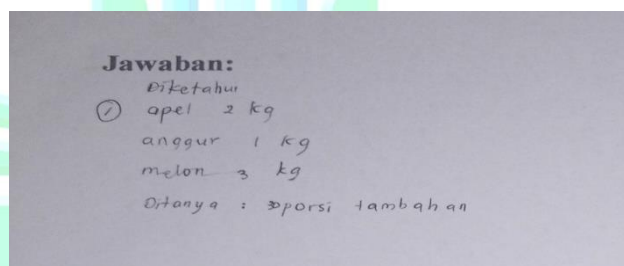 Jawaban:
Diketahui
① apel 2 kg
anggur 1 kg
melon 3 kg
Ditanya : 30 porsi tambahan